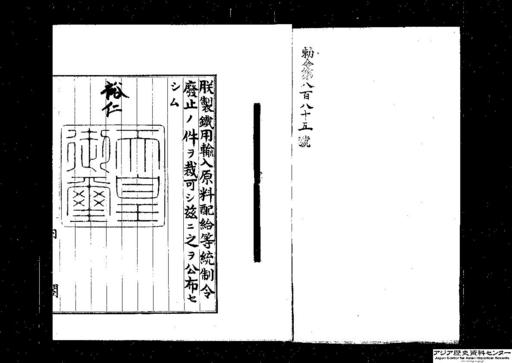 勅令第八百八十五號
朕製鐵用輸入原料配給等統制令
廢止ノ件ヲ裁可シ茲ニ之ヲ公布セ
シム
裕仁
天皇
御璽
内閣
アジア歴史資料センター
Japan Center for Asian Historical Records